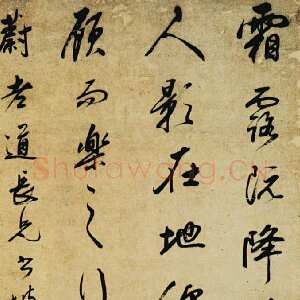 霜露既降
人影在地
顧而樂之行
蔚老道長兄
Shufawang.CN